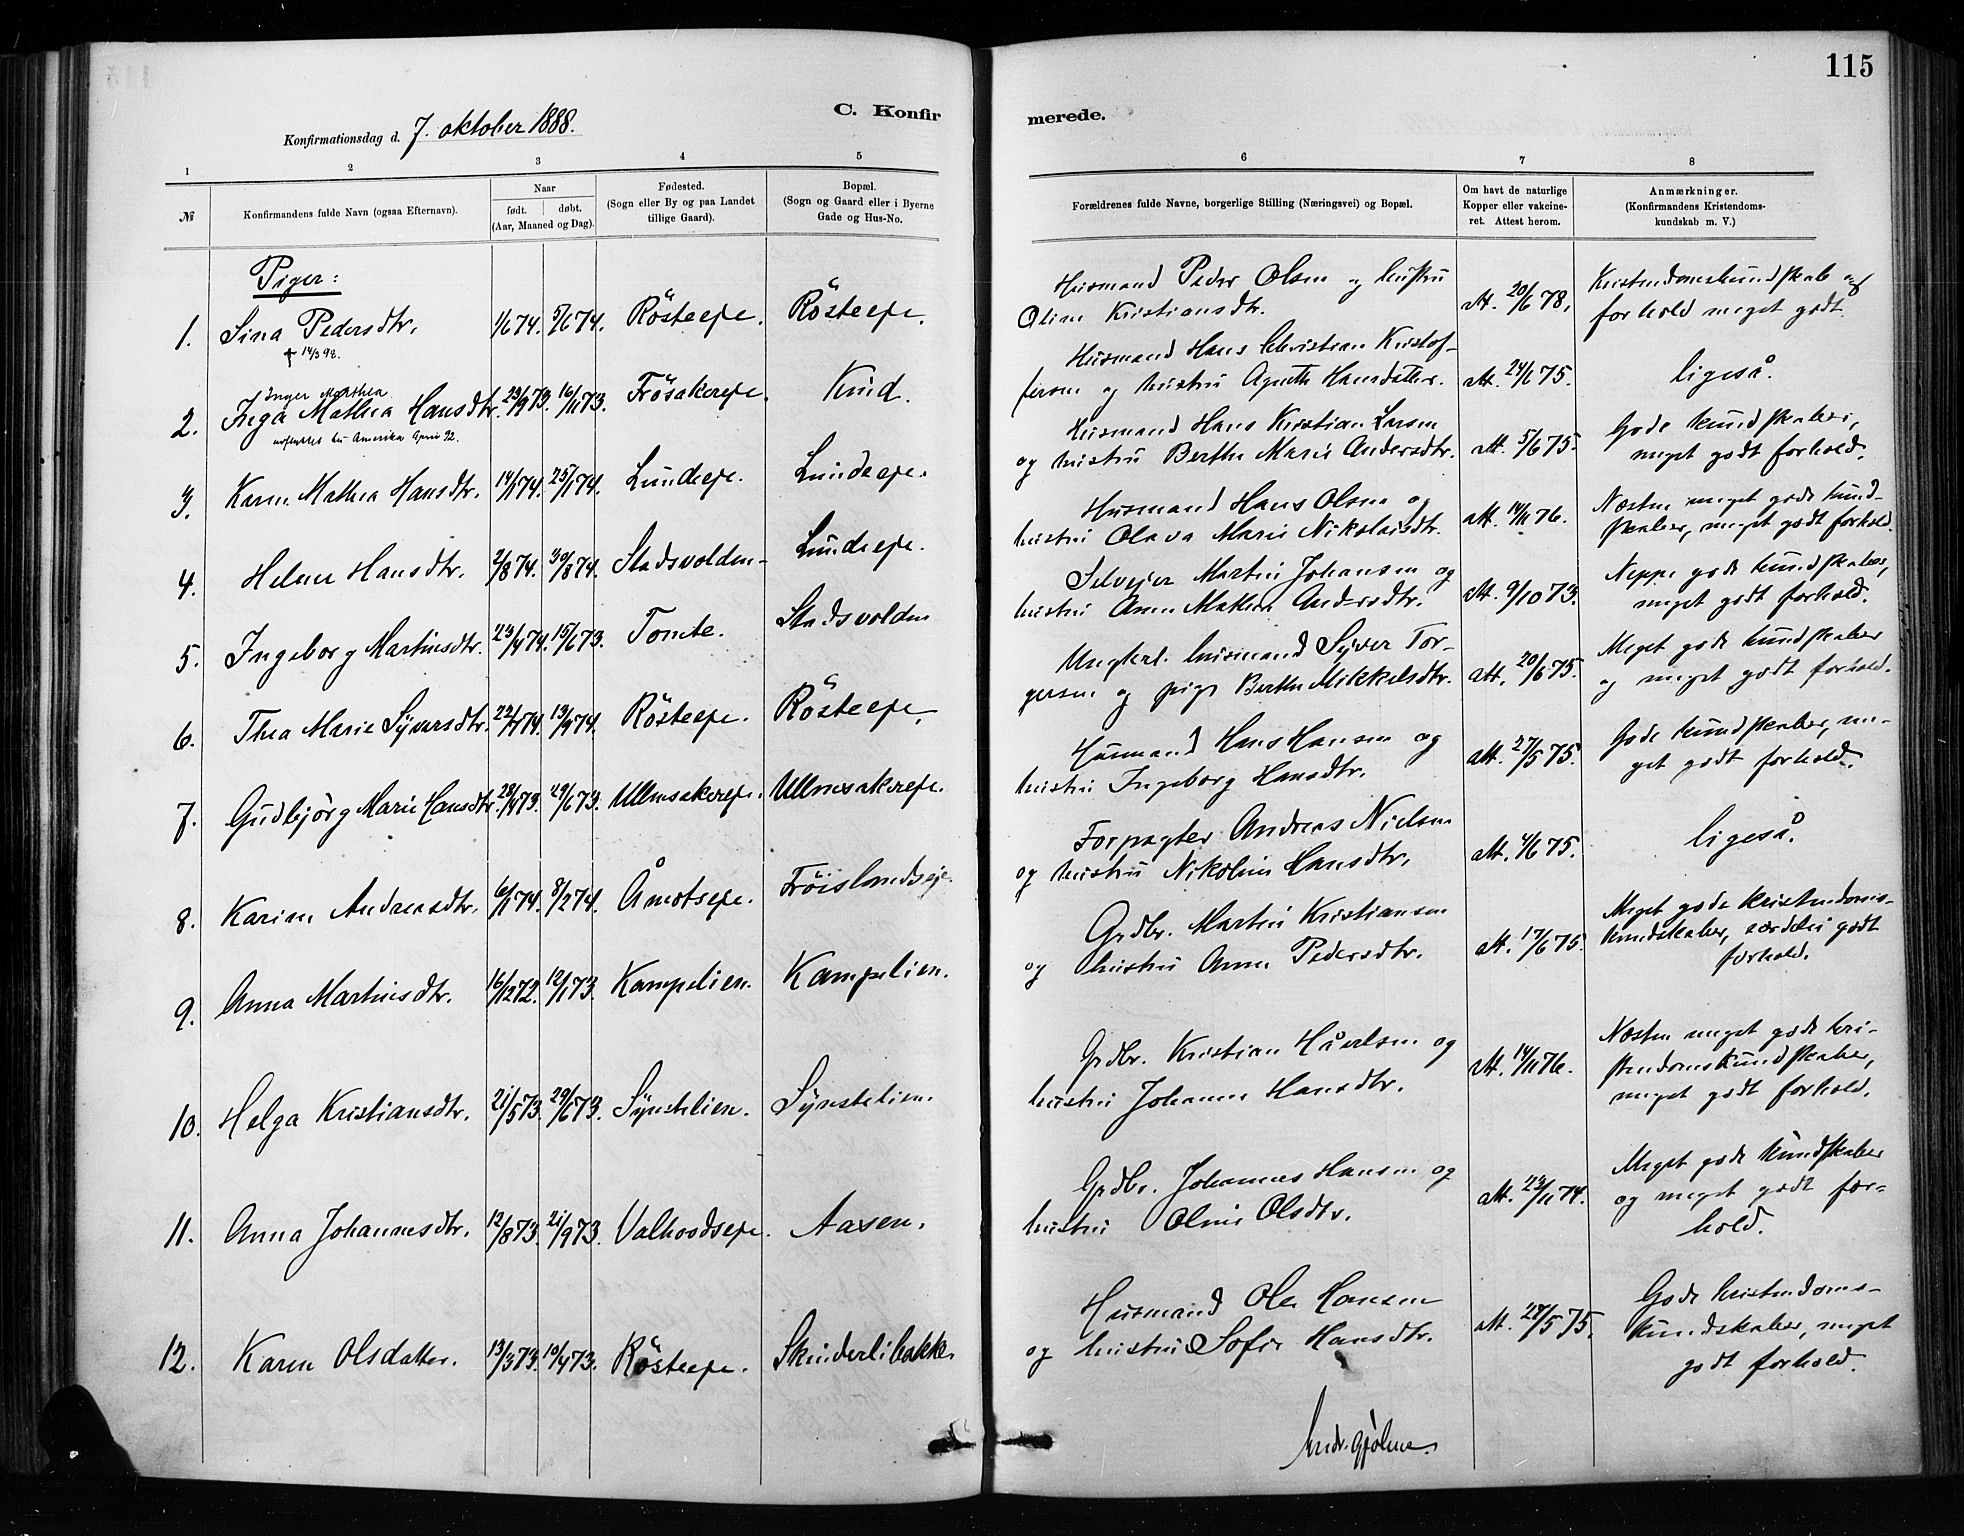 115
C. Konfirmerede.
Konfirmationsdag d. 7. oktober 1888.
1 2 3 4 5 6 7 8
№
Konfirmandens fulde Navn (ogsaa Efternavn).
Naar
født. døbt.
(Aar, Maaned og Dag).
Fødested.
(Sogn eller By og paa Landet
tillige Gaard).
Bopæl.
(Sogn og Gaard eller i Byerne
Gade og Hus-No.
Forældrenes fulde Navne, borgerlige Stilling (Næringsvei) og Bopæl.
Om havt de naturlige
Kopper eller vakcine-
ret. Attest herom.
Anmærkninger.
(Konfirmandens Kristendoms-
kundskab m. V.)
Piger:
1. Sina Pedersdtr. 1/6 74. 5/6 74. Rösteeje. Rösteeje.
+ 14/3 98.
Husmand Peder Olsen og hustru
Oline Kristiansdtr.
att. 20/6 78.
Kristendomskundskab og
forhold meget godt.
Inger Marthea
2. Inga Mathea Hansdtr. 23/9 73. 16/11 73. Frösakereje. Kind.
udflyttet til Amerika April 92.
Husmand Hans Christian Kristof-
fersen og hustru Agnethe Hansdatter.
att. 24/6 75.
ligeså.
3. Karen Mathea Hansdtr. 14/1 74. 25/1 74. Lundeeje. Lundeeje.
Husmand Hans Kristian Larsen
og hustru Berthe Marie Andersdtr.
att. 5/6 75.
Gode kundskaber,
meget godt forhold.
4. Helene Hansdtr. 2/8 74. 30/8 74. Stadsvolden- Lundeeje.
Husmand Hans Olsen og
hustru Olava Marie Nikolaisdtr.
att. 14/11 76.
Næsten meget gode kund-
skaber, meget godt forhold.
5. Ingeborg Martinsdtr. 23/4 74. 15/6 73. Tomte. Stadsvolden
Selveier Martin Johansen og
hustru Anne Mathea Andersdtr.
att. 9/10 73.
Neppe gode kundskaber,
meget godt forhold.
6. Thea Marie Syversdtr. 22/7 74. 13/9 74. Rösteeje. Rösteeje.
Ungkarl. husmand Syver Tor-
gersen og pige Berthe Mikkelsdtr.
att. 20/6 75.
Meget gode kundskaber
og meget godt forhold.
7. Gudbjörg Marie Hansdtr. 28/4 73. 29/6 73. Ullensakereje. Ullensakereje.
Husmand Hans Hansen og
hustru Ingeborg Hansdtr.
att. 27/5 75.
Gode kundskaber, me-
get godt forhold.
8. Karine Andreasdtr. 6/1 74. 8/2 74. Åmotseje. Fröislandseje.
Forpagter Andreas Nielsen
og hustru Nikoline Hansdtr.
att. 4/6 75.
ligeså.
9. Anna Martinsdtr. 16/12 72. 12/1 73. Kampelien. Kampelien.
Grdbr. Martin Kristiansen
og hustru Anne Pedersdtr.
att. 17/6 75.
Meget gode kristendoms-
kundskaber, særdeles godt
forhold.
10. Helga Kristiansdtr. 21/5 73. 29/6 73. Synstelien. Synstelien.
Grdbr. Kristian Håerlsen og
hustru Johanne Hansdtr.
att. 14/11 76.
Næsten meget gode kri-
stendomskundskaber,
meget godt forhold.
11. Anna Johannesdtr. 12/8 73. 21/9 73. Valhovdseje. Aasen.
Grdbr. Johannes Hansen og
hustru Oline Olsdtr.
att. 23/11 74.
Meget gode kundskaber
og meget godt for-
hold.
12. Karen Olsdatter. 13/3 73. 10/4 73. Rösteeje. Skinderlibakke.
Husmand Ole Hansen
og hustru Sofie Hansdtr.
att. 28/5 75.
Gode kristendoms-
kundskaber, meget
godt forhold.
Andr. Gjölme.